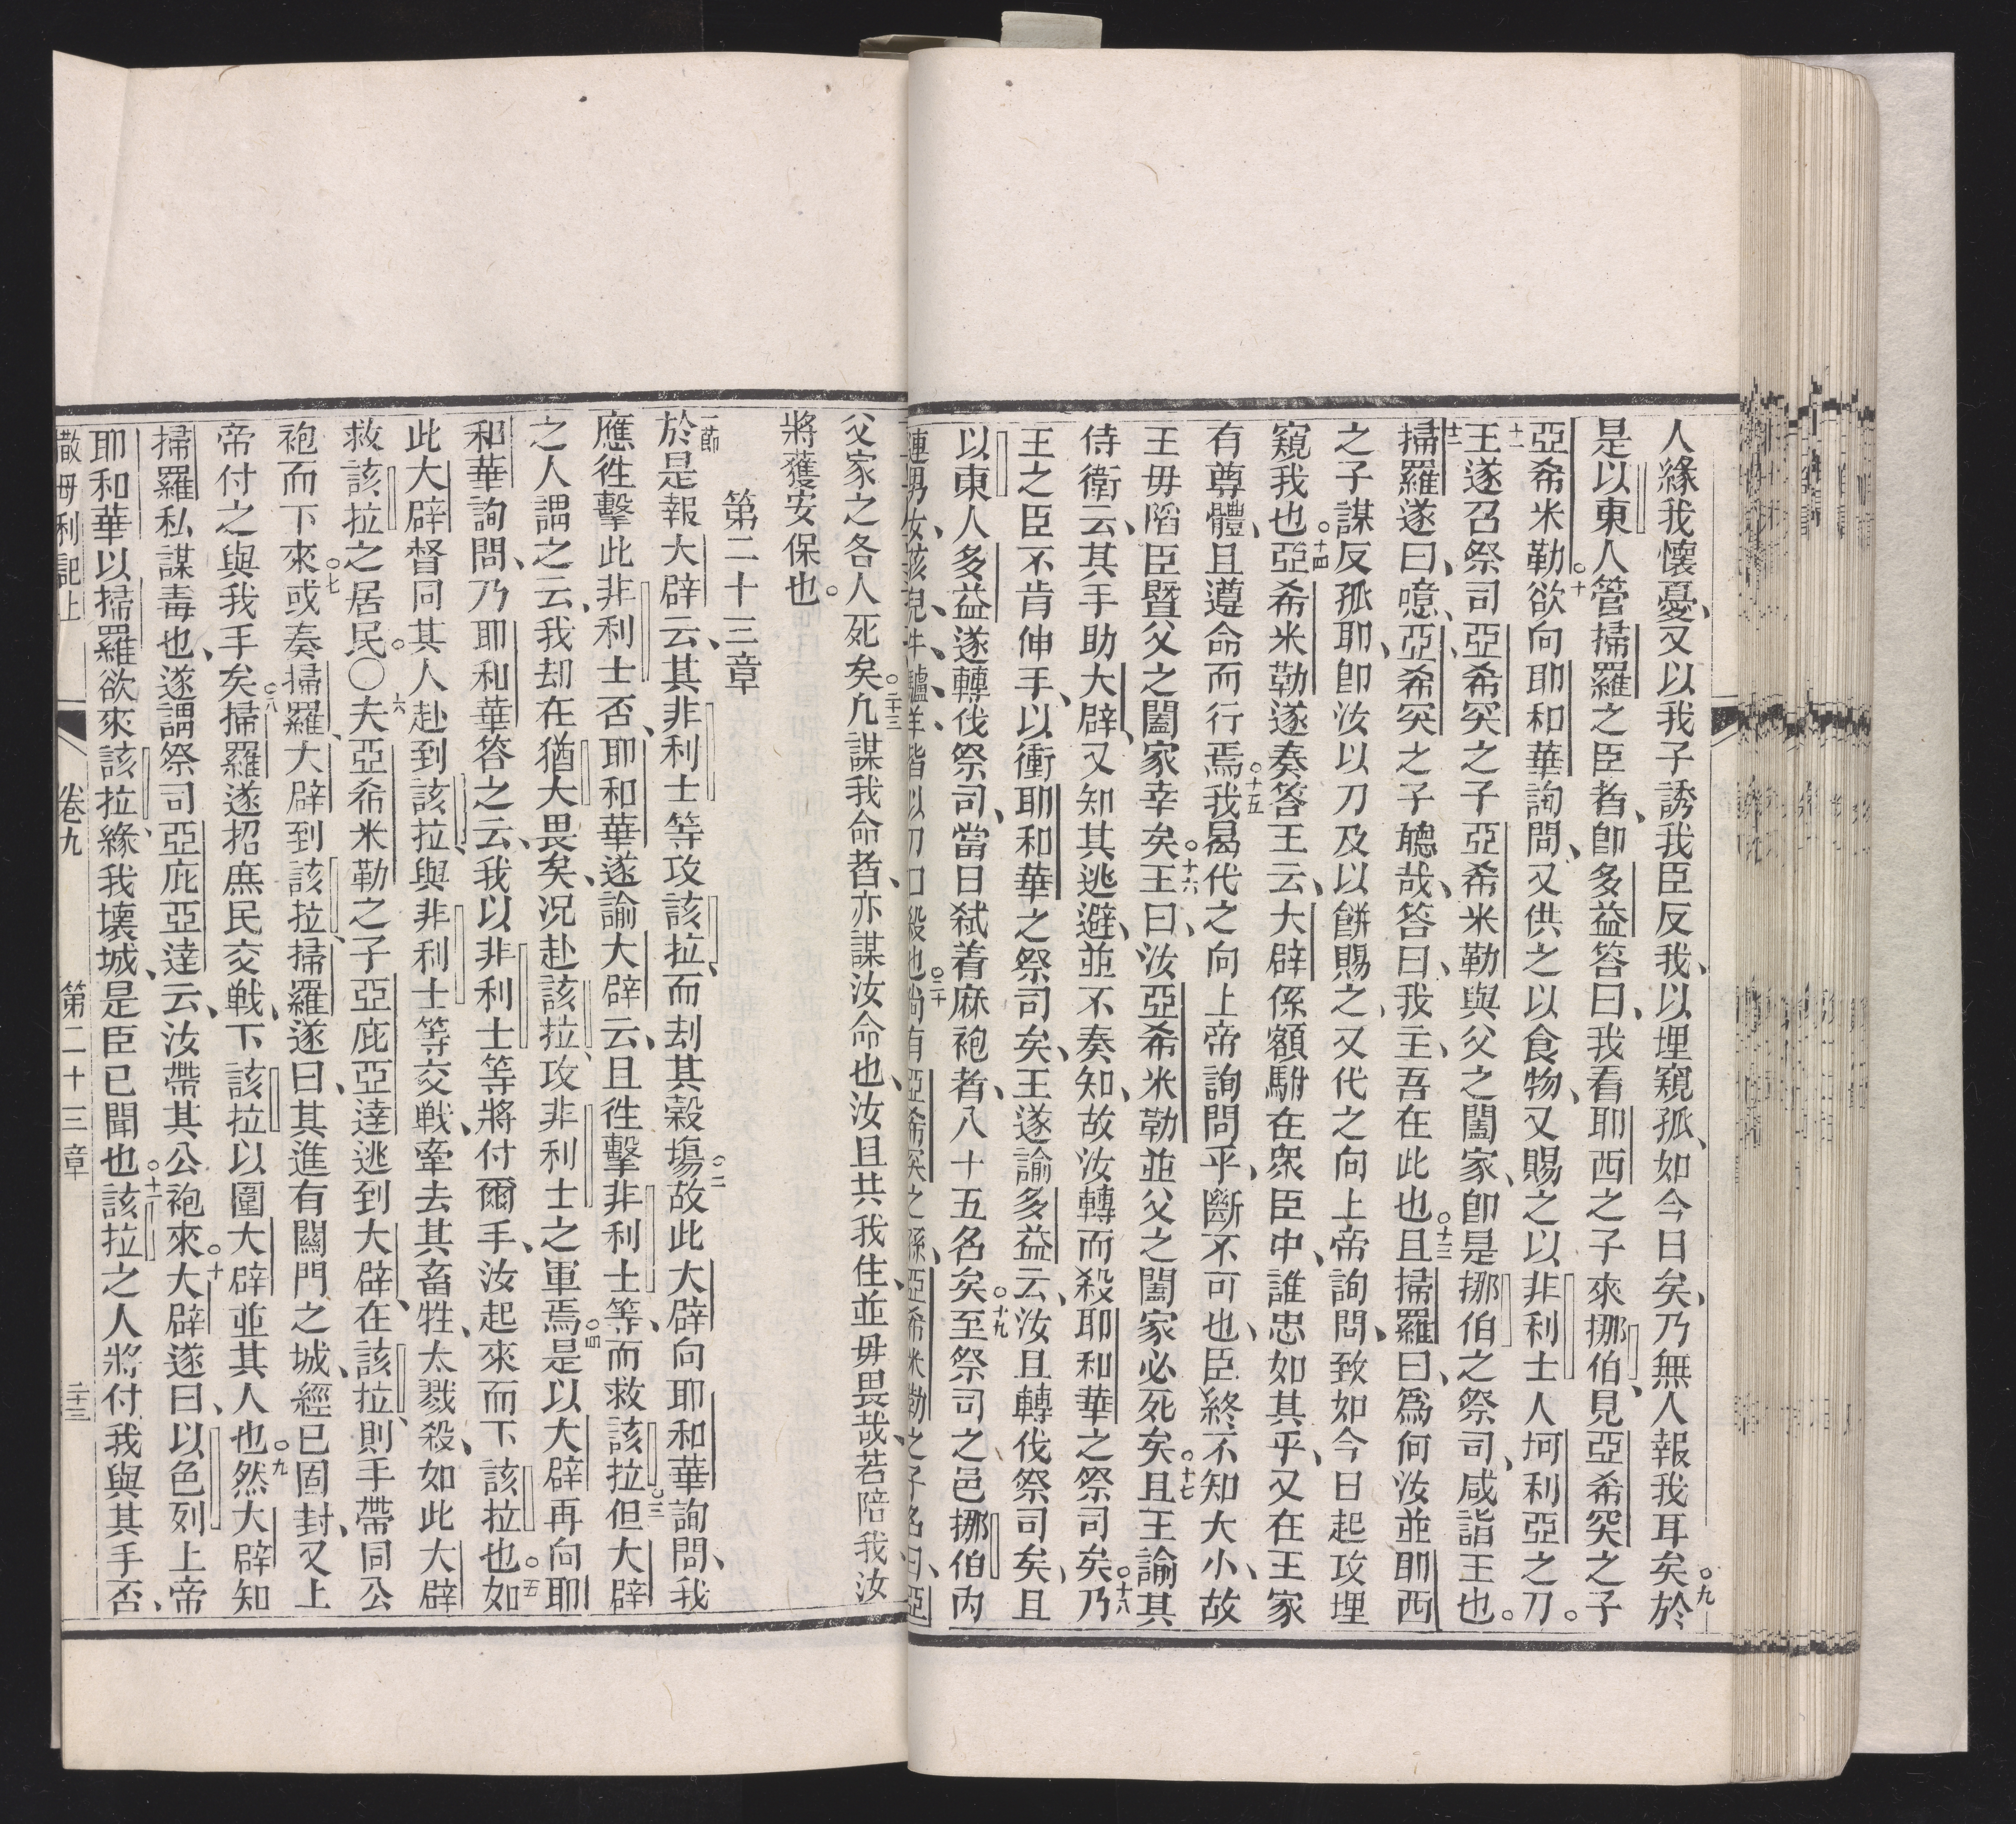 人緣我懷憂、又以我子誘我臣反我、以埋窺孤、如今日矣、乃無人報我耳矣○九於
是以東人管掃羅之臣者、卽多益答曰、我看耶西之子來挪伯、見亞希突之子
亞希米勒○十欲向耶和華詢問、又供之以食物、又賜之以非利士人坷利亞之刀。
十一王遂召祭司亞希突之子亞希米勒與父之闔家、卽是挪伯之祭司、咸詣王也。
十二掃羅遂曰、噫、亞希突之子聽哉、答曰、我主、吾在此也○十三且掃羅曰、爲何汝並耶西
之子謀反孤耶、卽汝以刀及以餅賜之、又代之向上帝詢問、致如今日起攻埋
窺我也○十四亞希米勒遂奏答王云、大辟係額駙在衆臣中、誰忠如其乎、又在王家
有尊體、且遵命而行焉○十五我曷代之向上帝詢問乎、斷不可也、臣終不知大小、故
王毋陷臣曁父之闔家幸矣○十六王曰、汝亞希米勒並父之闔家必死矣○十七且王諭其
侍衛云、其手助大辟、又知其逃避、並不奏知、故汝轉而殺耶和華之祭司矣○十八乃
王之臣不肯伸手、以衝耶和華之祭司矣、王遂諭多益云、汝且轉伐祭司矣、且
以東人多益遂轉伐祭司、當日弒着麻袍者、八十五名矣○十九至祭司之邑挪伯內
連男女孩兒、牛、驢、羊、皆以刀口殺也○二十尚有亞希突之孫、亞希米勒之子名曰、亞
父家之各人死矣○二十三凢謀我命者、亦謀汝命也、汝且共我住、並毋畏哉、若陪我汝
將獲安保也。
第二十三章
一節於是報大辟云、其非利士等攻該拉、而刦其穀塲○二故此大辟向耶和華詢問、我
應徃擊此非利士否、耶和華遂諭大辟云、且徃擊非利士等、而救該拉○三但大辟
之人謂之云、我却在猶大畏矣、况赴該拉、攻非利士之軍焉○四是以大辟再向耶
和華詢問、乃耶和華答之云、我以非利士等將付爾手、汝起來而下該拉也○五如
此大辟督同其人赴到該拉、與非利士等交戦、牽去其畜牲、太戮殺、如此大辟
救該拉之居民。○六夫亞希米勒之子亞庇亞逹逃到大辟、在該拉、則手帶同公
袍而下來○七或奏掃羅、大辟到該拉、掃羅遂曰、其進有關門之城、經已固封、又上
帝付之與我手矣○八掃羅遂招庶民交戦、下該拉以圍大辟並其人也○九然大辟知
掃羅私謀毒也、遂謂祭司亞庇亞逹云、汝帶其公袍來○十大辟遂曰、以色列上帝
耶和華以掃羅欲來該拉、緣我壞城、是臣已聞也○十一該拉之人將付我與其手否、
撒毋利記上 卷九 第二十三章 二十三